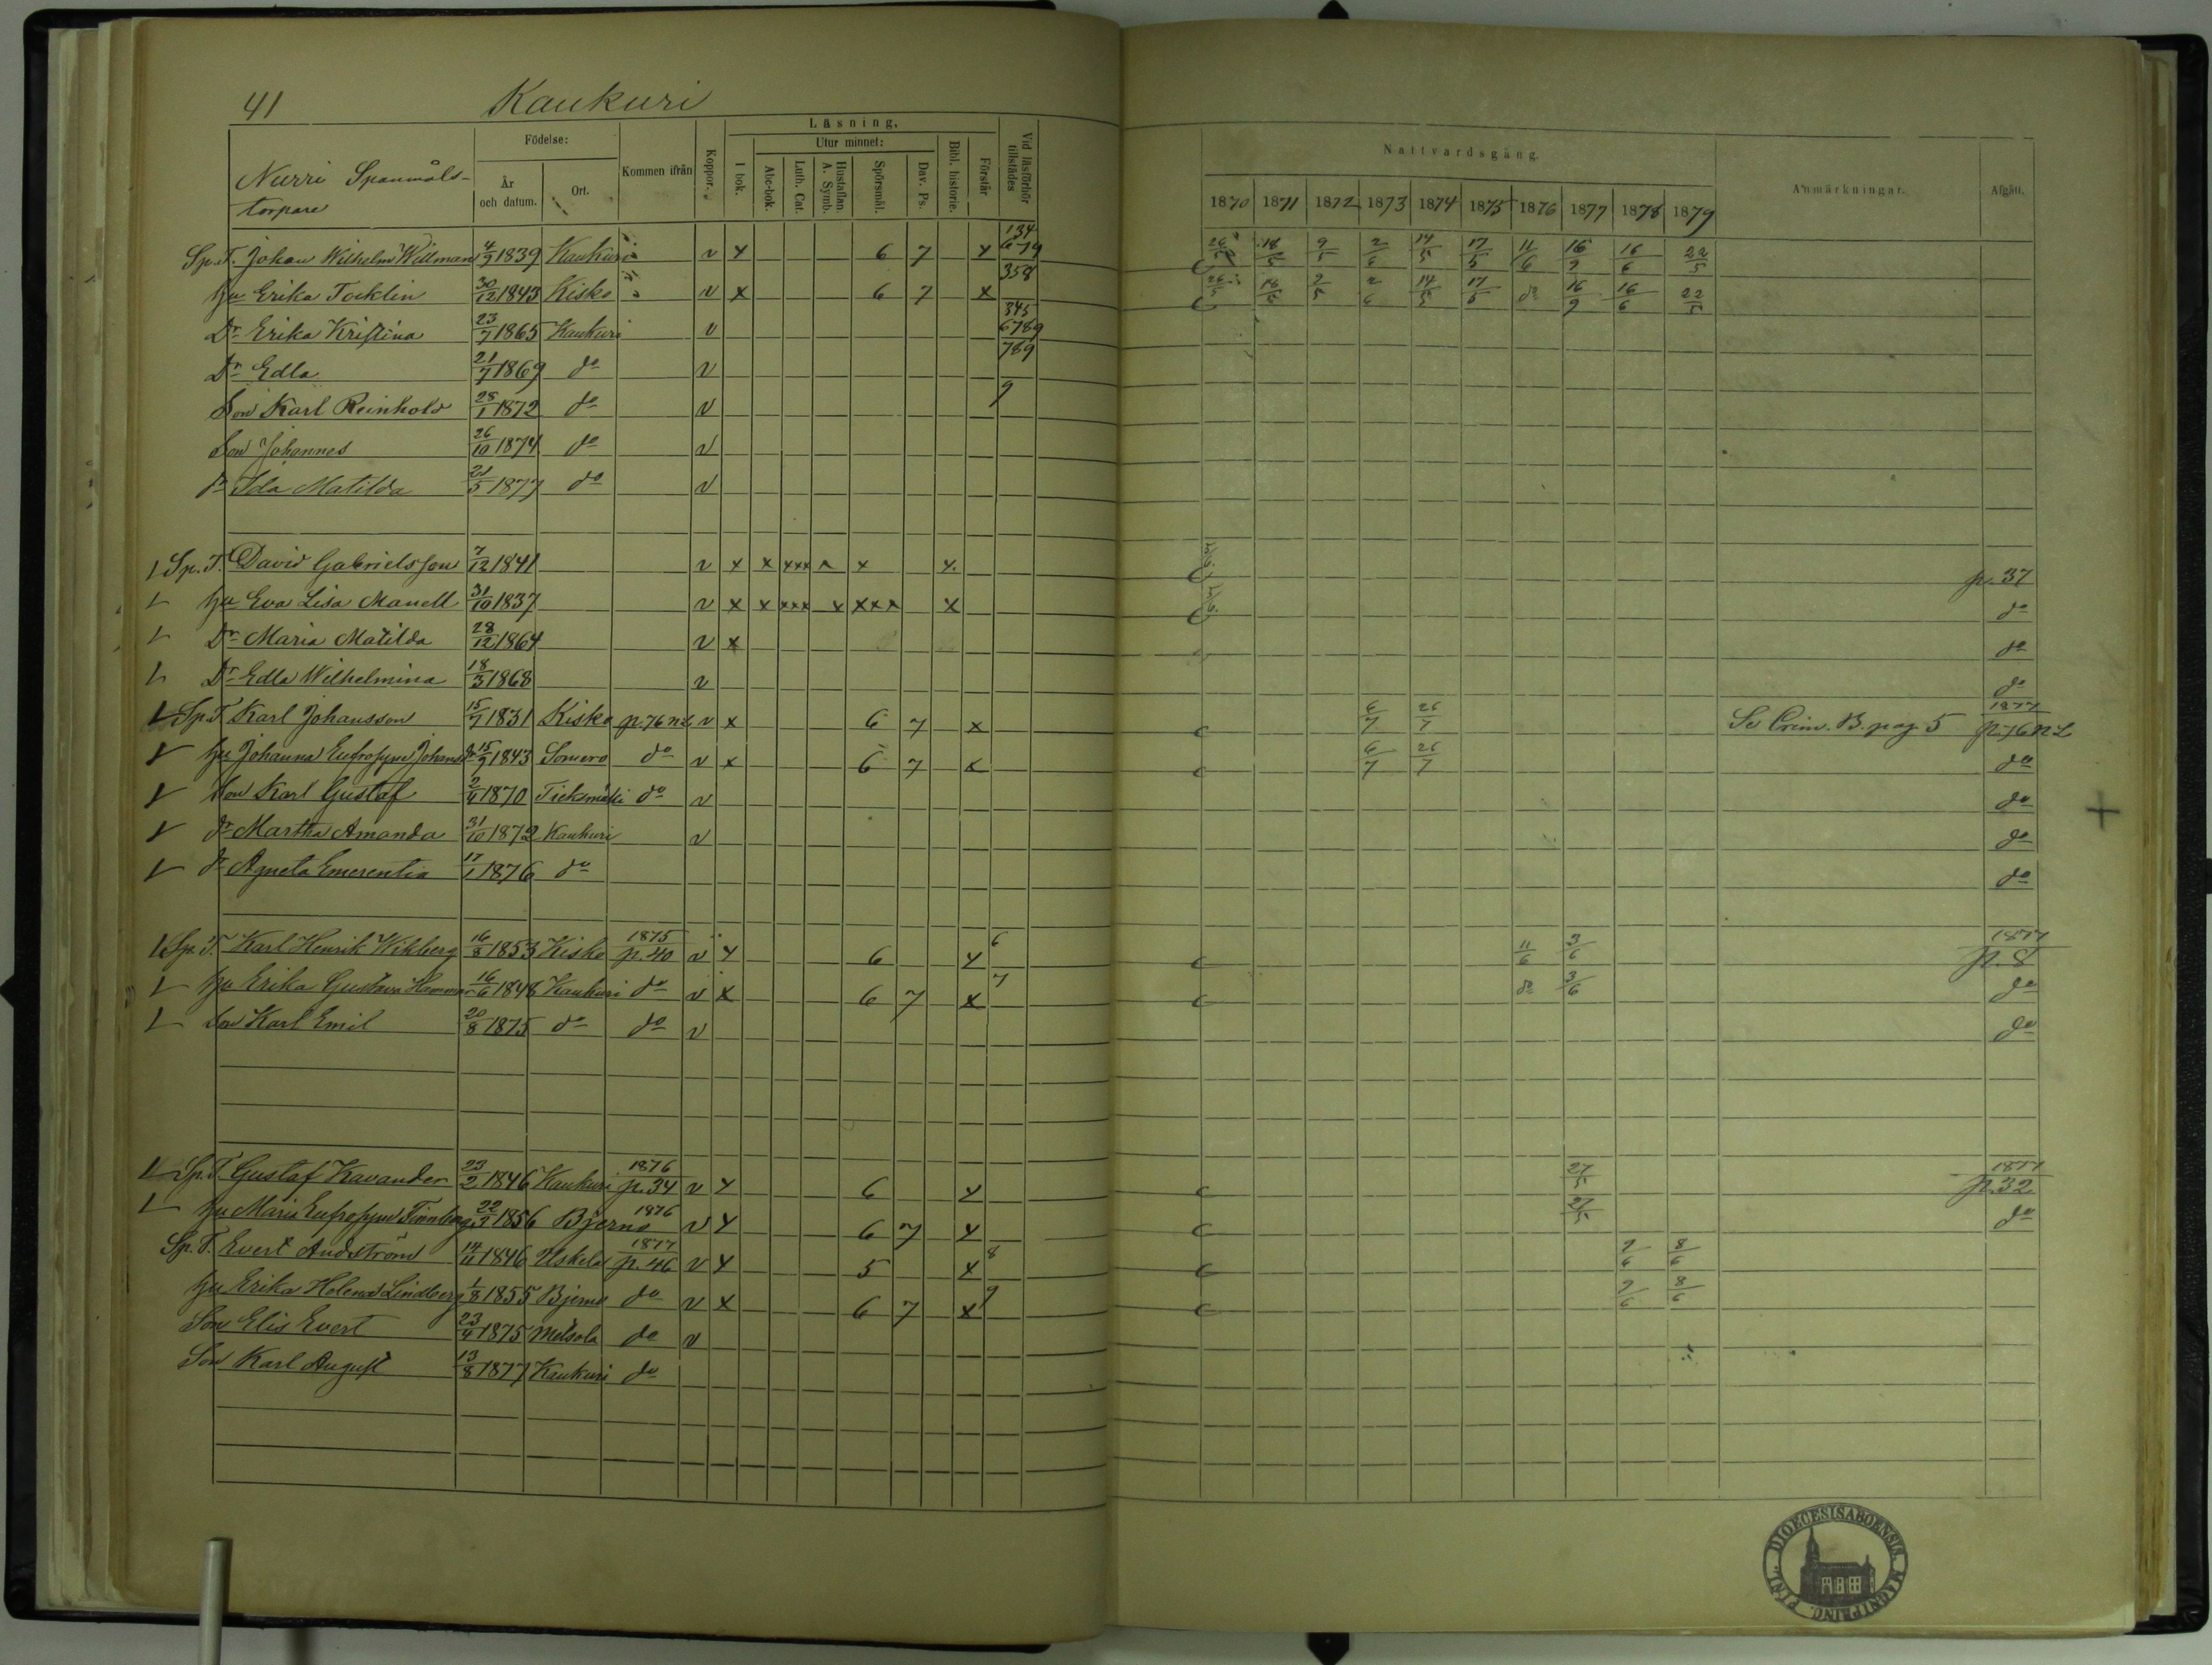 41 Kaukuri
Nurri Spanmåls-
torpare
Födelse:
År och datum.
Ort.
Kommen ifrån
Koppor.
Läsning.
Utur minnet:
I bok.
Abc-bok.
Luth. Cat.
Hustaflan. A. Symb.
Spörsmål.
Dav. Ps.
Bibl. historie.
Förstår
Vid läsförhör tillstädes
Nattvardsgång.
1870 1871 1872 1873 1874 1875 1876 1877 1878 1879
Anmärkningar.
Afgått.
Sp. T. Johan Wilhelm Willman 4/9 1839 Kaukuri v x 6 7 x 134 679 26/5 18/5 9/5 2/6 14/5 17/5 11/6 16/9 16/6 22/5
hu Erika Tocklin 30/12 1843 Kisko v x 6 7 x 358 26/5 18/5 9/5 2/6 14/5 17/5 do 16/9 16/6 22/5
Dr Erika Kristina 23/7 1865 Kaukuri v 345 6789
Dr Edla 21/7 1869 do v 789
Son Karl Reinhold 28/1 1872 do v 9
Son Johannes 26/10 1874 do v
dr Ida Matilda 21/5 1877 do v
Sp. T. David Gabrielsson 7/12 1841 v x x xxx x x x. 5/6. p. 37
hu Eva Lisa Manell 31/10 1837 v x x xxx x xxx x 5/6. do
Dr Maria Matilda 28/12 1864 v x do
Dr Edla Wilhelmina 18/3 1868 v do
Sp. T. Karl Johansson 15/7 1831 Kisko p. 76 n.L v x 6 7 x 6/7 26/7 Se Crim. B. pag. 5 1877 p. 76 n.L
hu Johanna Eufrosyne Johansdr 15/9 1843 Somero do v x 6 7 x 6/7 26/7 do
Son Karl Gustaf 2/4 1870 do v do
dr Martha Amanda 31/10 1872 Kaukuri v do
dr Agneta Emerentia 17/1 1876 do do
Sp. T. Karl Henrik Wikberg 16/8 1853 Kisko 1875 p. 40 v x 6 x 6 11/6 3/6 1877 p. 8
hu Erika Gustava Hammar 16/6 1848 Kaukuri do v x 6 7 x 7 do 3/6 do
Son Karl Emil 20/8 1875 do do v do
Sp. T. Gustaf Kavander 23/2 1846 Kaukuri 1876 p. 34 v x 6 x 27/5 1877 p. 32
hu Maria Eufrosyne Finnberg 22/3 1856 Bjerno 1876 v x 6 7 x 27/5 do
Sp. T. Evert Andström 14/11 1846 Uskela 1877 p. 46 v x 5 x 8 2/6 8/6
hu Erika Helena Lindberg 1/8 1855 Bjerno do v x 6 7 x 9 2/6 8/6
Son Elis Evert 23/4 1875 Metsola do v
Son Karl August 13/8 1877 Kaukuri do
DIOECESIS ABOENSIS. MAGNI PRINC. FINL.